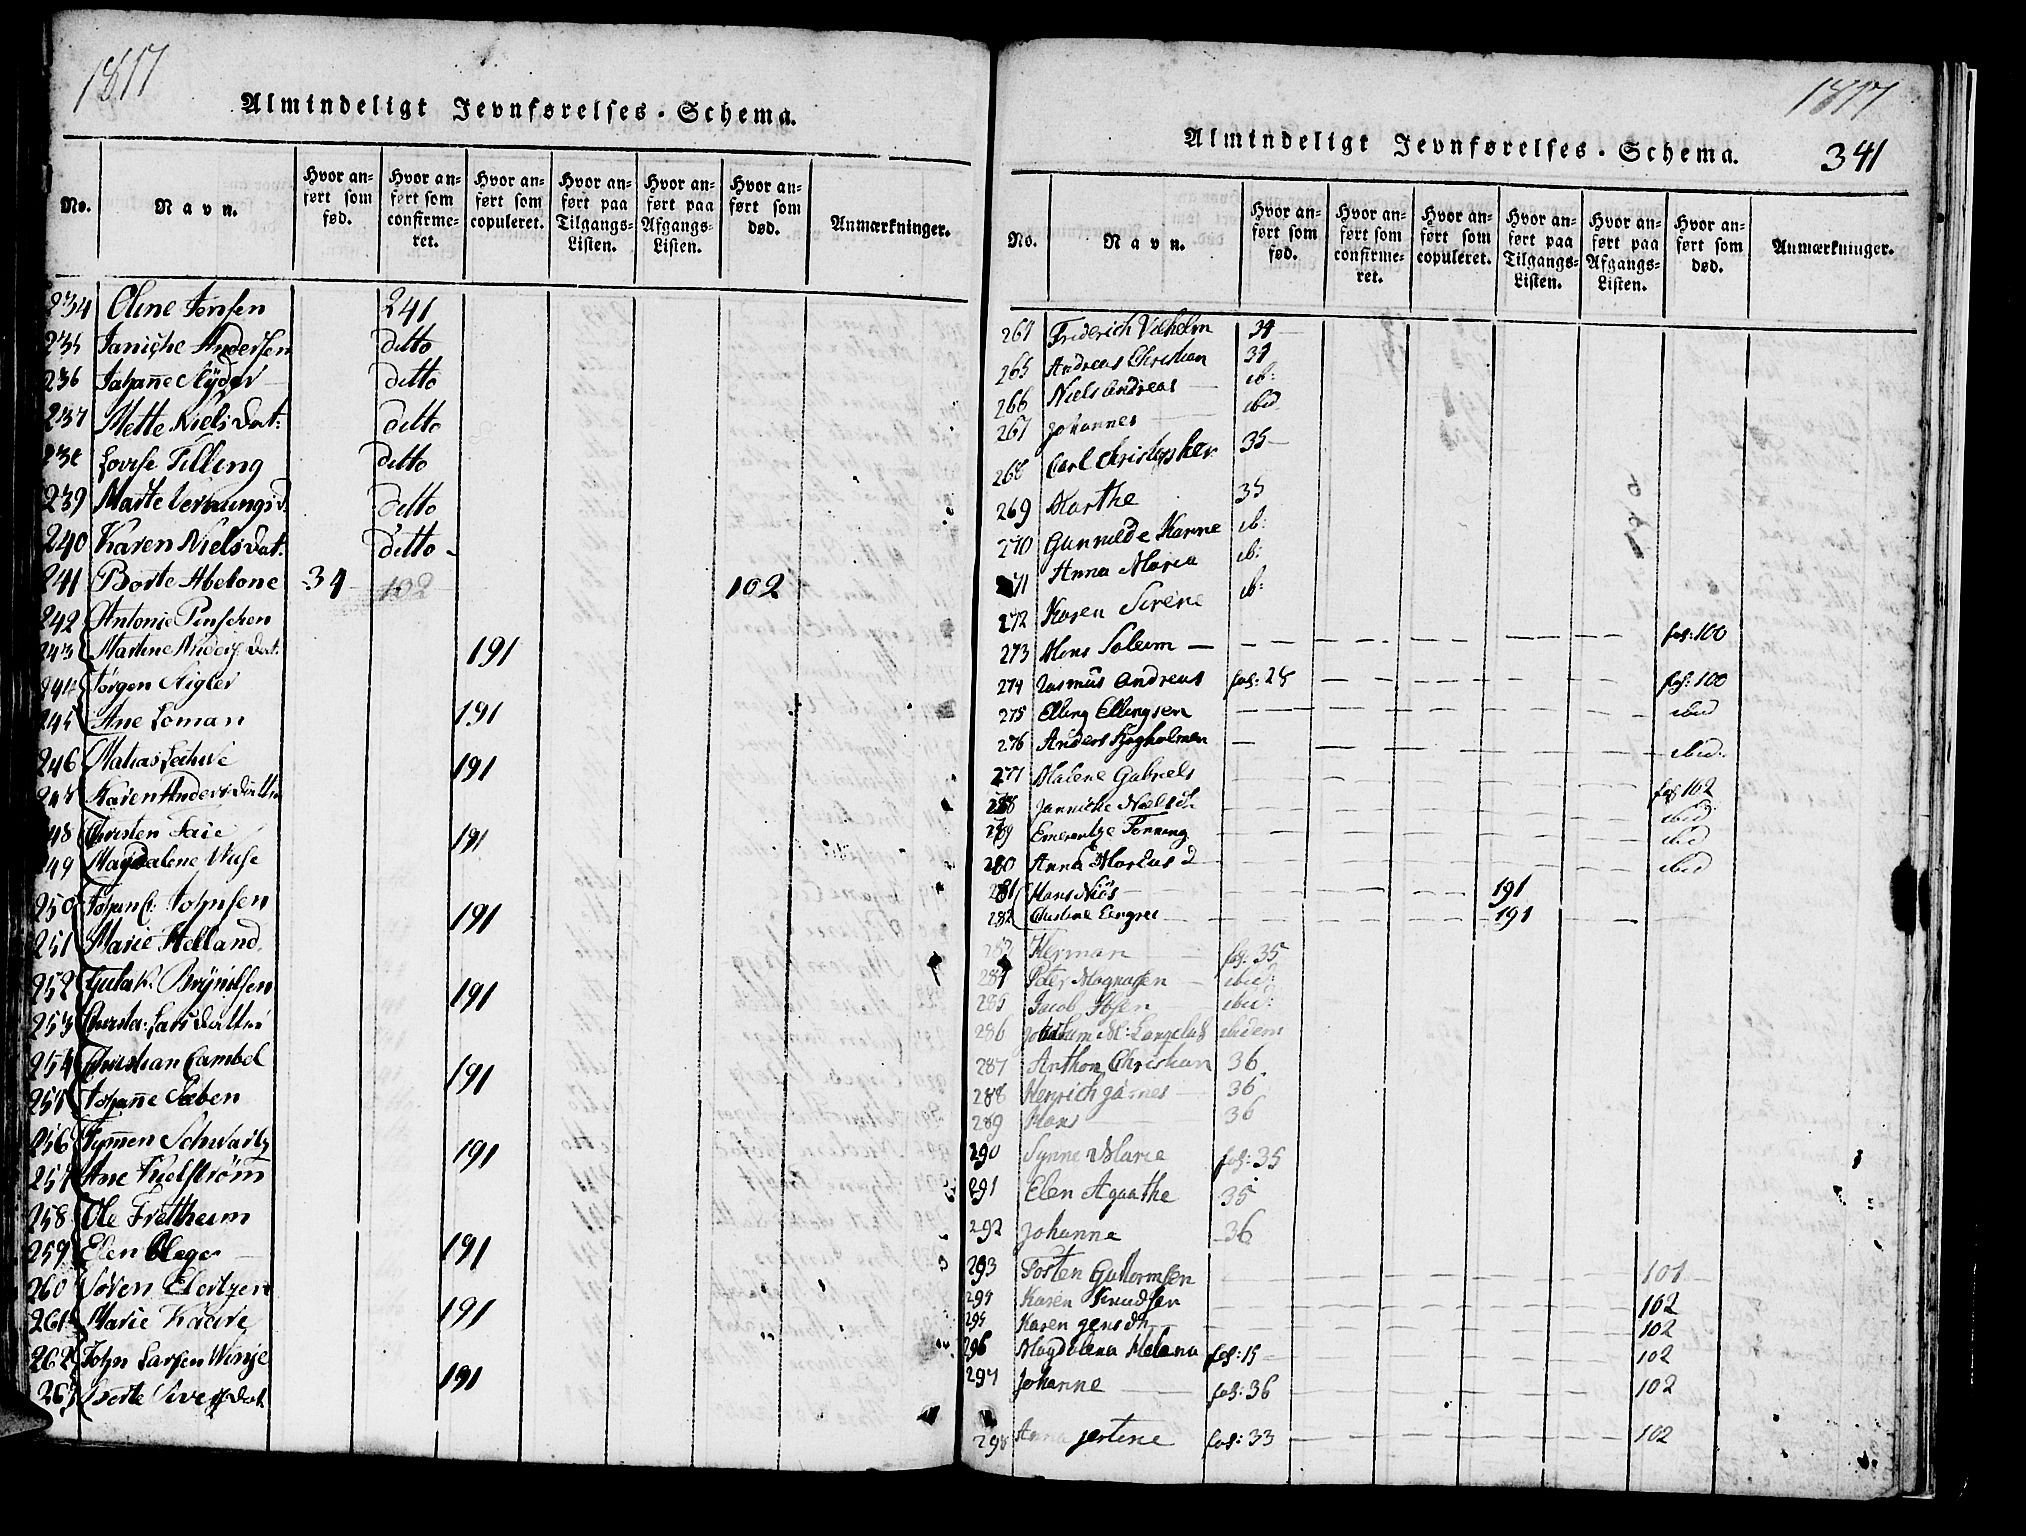 1817
Almindeligt Jevnførelses-Schema.
No. Navn. Hvor anført som fød. Hvor anført som confirmeret. Hvor anført som copuleret. Hvor anført paa Tilgangs-Listen. Hvor anført paa Afgangs-Listen. Hvor anført som død. Anmærkninger.
234 Oline Jonsen 241
235 Janiche Andersen ditto
236 Johan̄e ditto
237 Mette Niels Dat: ditto
238 Lovise Telling ditto
239 Marte ditto
240 Karen Niels Dat: ditto
241 Borte Abelone 34 102 102
242 Antonie
243 Martine Dat: 191
244 Jørgen Sigler
245 Ane Loman 191
246 Matias 191
247 Karen Anders Datter
248 Christen Faie 191
249 Magdalene Wiese
250 Johan C: Johnsen 191
251 Marie Helland
252 191
253 Lars Datter
254 Christian Cambel 191
255 Johan̄e Sæben
256 Schwartz 191
257 Ane Kielstrøm
258 Ole Fretheim
259 Elen 191
260 Søren
261 Marie Kaare 191
262 John Larsen Winje
263 191
1817
341
Almindeligt Jevnførelses-Schema.
No. Navn. Hvor anført som fød. Hvor anført som confirmeret. Hvor anført som copuleret. Hvor anført paa Tilgangs-Listen. Hvor anført paa Afgangs-Listen. Hvor anført som død. Anmærkninger.
264 Friderich Vilhelm 34
265 Andreas Christian 34
266 Niels Andreas ib:
267 Johannes ibid
268 Carl Christopher 35
269 Marthe 35
270 Gunnilde Hanne ib:
271 Anna Maria ib:
272 Karen Sirene ib:
273 Mons Soleim fol: 100
274 Rasmus Andreas fol: 28 fol: 100
275 Elling Ellingsen ibid
276 Anders ibid:
277 Malene Gabriels fol 102
278 Jannicke Niels D. ibid
279 Fenning ibid
280 Anna D ibid
281 Hans 191
282 191
283 Herman fol: 35
284 Peter Magnussen ibid:
285 Jacob ibid:
286 ibidem
287 Anthon Christian 36
288 Henrich James 36
289 Hans 36
290 Synne Marie fol: 35
291 Elen Agathe 35
292 Johanne 36
293 Torsten Guttormsen 101
294 Karen Knudsen 102
295 Karen Jensdtr 102
296 Magdalena Helena fol: 15 102
297 Johanne fol: 36 102
298 Anna Jertine fol: 33 102